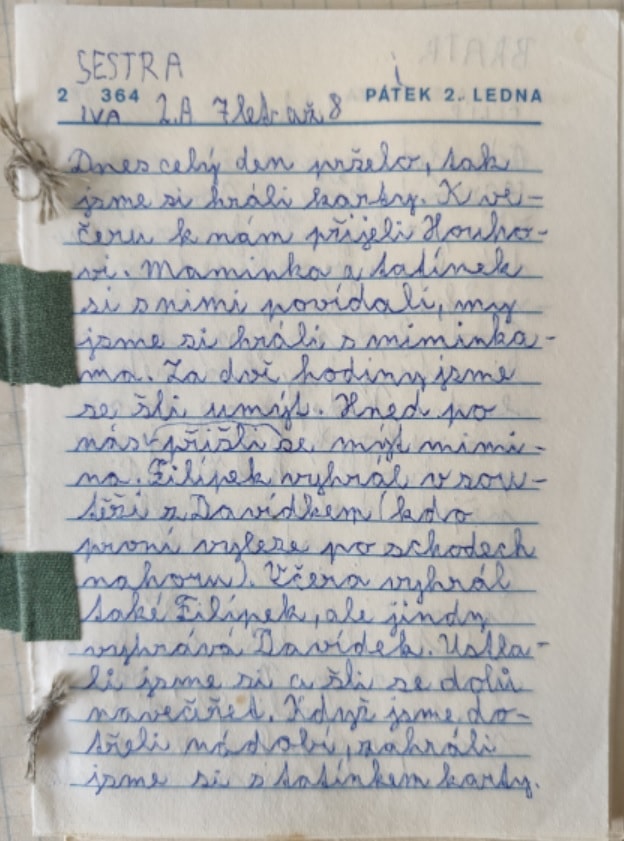 SESTRA
2 364 PÁTEK 2. LEDNA
IVA 2.A 7 let až 8
Dnes celý den pršelo, tak
jsme si hráli karty. K ve-
čeru k nám přijeli Houho-
vi. Maminka a tatínek
si s nimi povídali, my
jsme si hráli s miminka-
ma. Za dvě hodiny jsme
se šli umýt. Hned po
nás přišli se mýt mimi-
na. Filípek vyhrál v sou-
těži s Davídkem (kdo
první vyleze po schodech
nahoru). Včera vyhrál
také Filípek, ale jindy
vyhrává Davídek. Ustla-
li jsme si a šli se dolů
navečeřet. Když jsme do-
třeli nádobí, zahráli
jsme si s tatínkem karty.